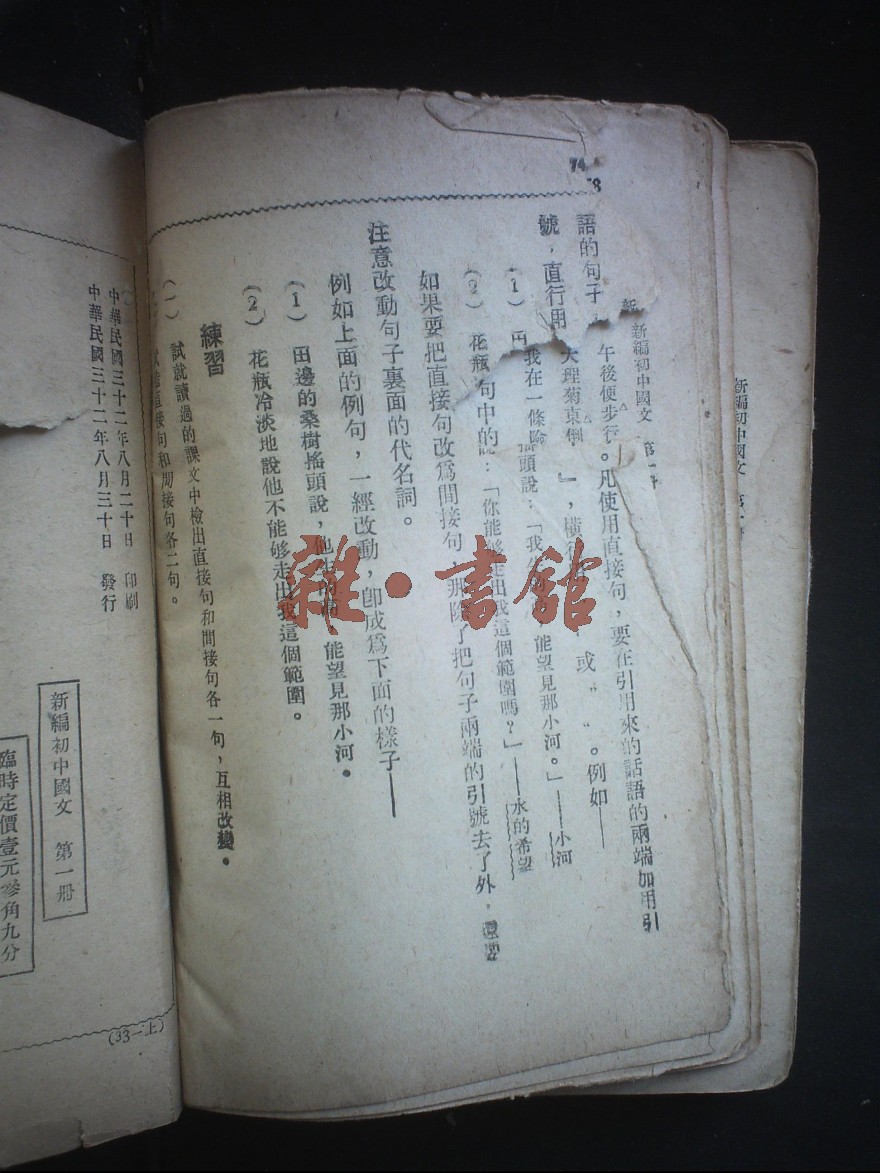 74
新編初中國文 第一冊
語的句子
午後便步行。凡使用直接句,要在引用來的話語的兩端加用引
號,直行用
』,橫行
或“ ”。例如——
(1)
搖頭說:「我
能望見那小河。」——小河
(2) 花瓶
句中的說:「你能够走出我這個範圍嗎?」——水的希望
如果要把直接句改爲間接句,那除了把句子兩端的引號去了外,還要
注意改動句子裏面的代名詞。
例如上面的例句,一經改動,卽成爲下面的樣子——
(1) 田邊的桑樹搖頭說,他
能望見那小河。
(2) 花瓶冷淡地說他不能够走出我這個範圍。
練習
(一) 試就讀過的課文中檢出直接句和間接句各一句,互相改變。
直接句和間接句各二句。
中華民國三十二年八月二十日 印刷
中華民國三十二年八月三十日 發行
新編初中國文 第一冊
臨時定價壹元參角九分
(33—上)
新編初中國文
雜·書館